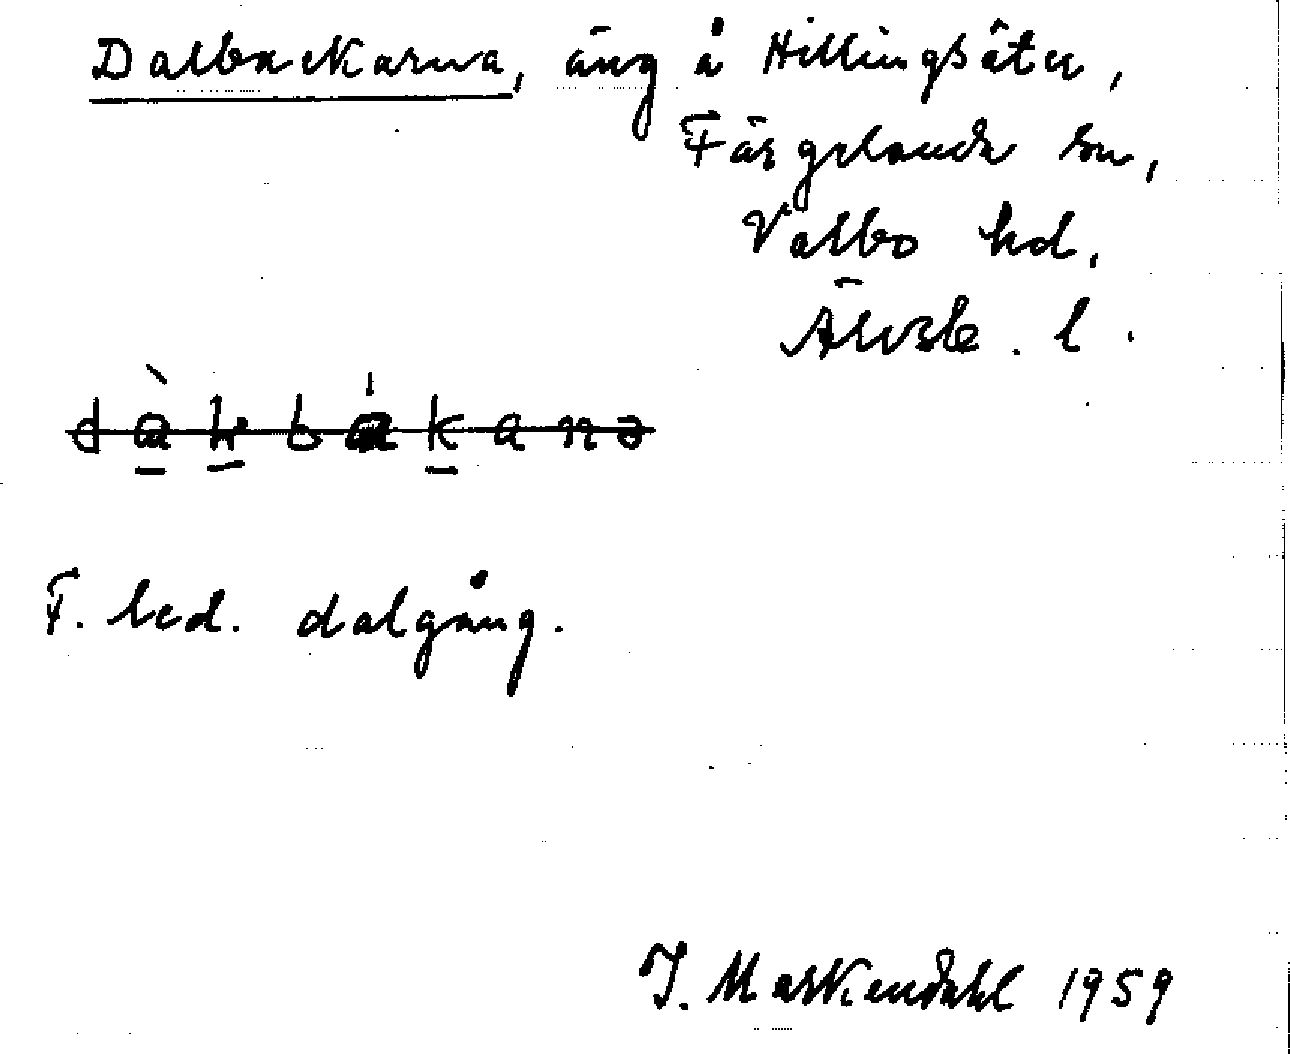 Dalbackarna, äng å Hillingsäter,
Färgelanda sn,
Valbo hd,
Älvsb. l.
F. led. dalgång.
J. Markendahl 1959